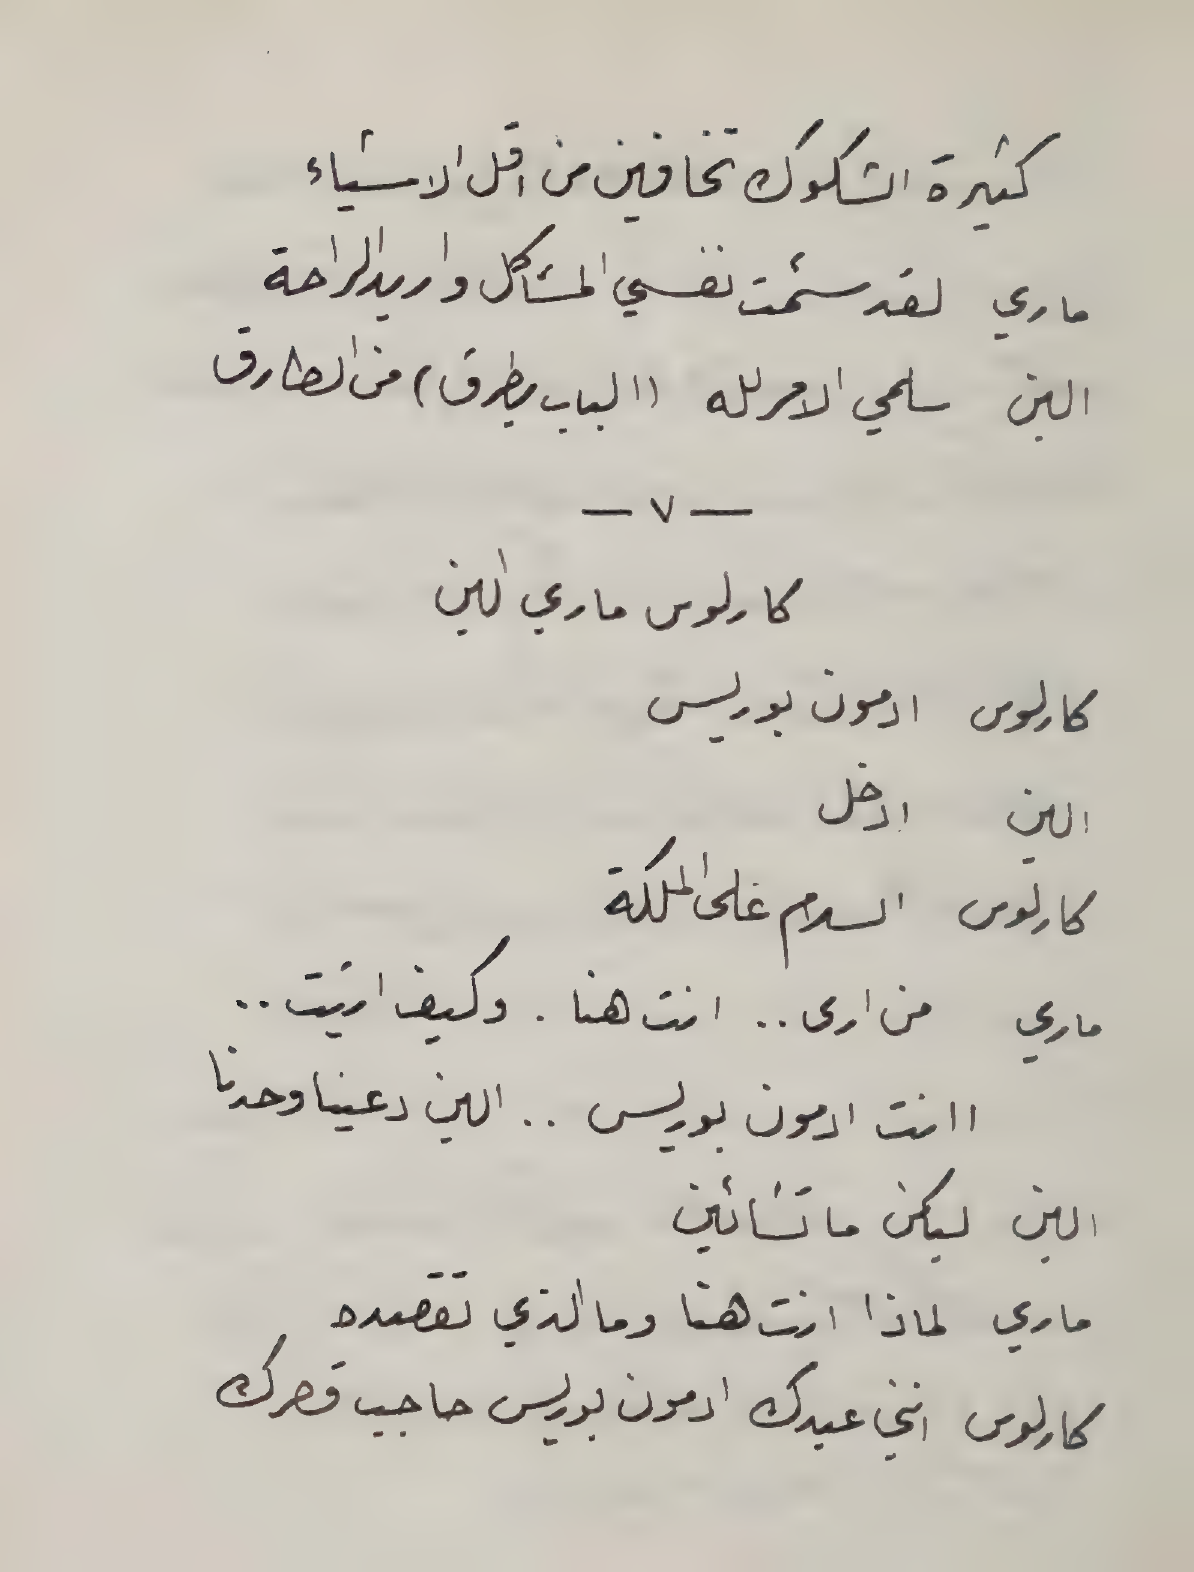 كثيرة الشكوك تخافين من اقل الاشياء
ماري لقد سئمت نفسي المشاكل واريد الراحة
الين سلمي الامر لله (الباب يطرق) من الطارق
— ٧ —
كارلوس ماري الين
كارلوس ادمون بوريس
الين ادخل
كارلوس السلام على الملكة
ماري من ارى .. انت هنا . وكيف اتيت ..
اانت ادمون بوريس .. الين دعينا وحدنا
الين ليكن ما تشائين
ماري لماذا انت هنا وما الذي تقصده
كارلوس انني عبدك ادمون بوريس حاجب قصرك